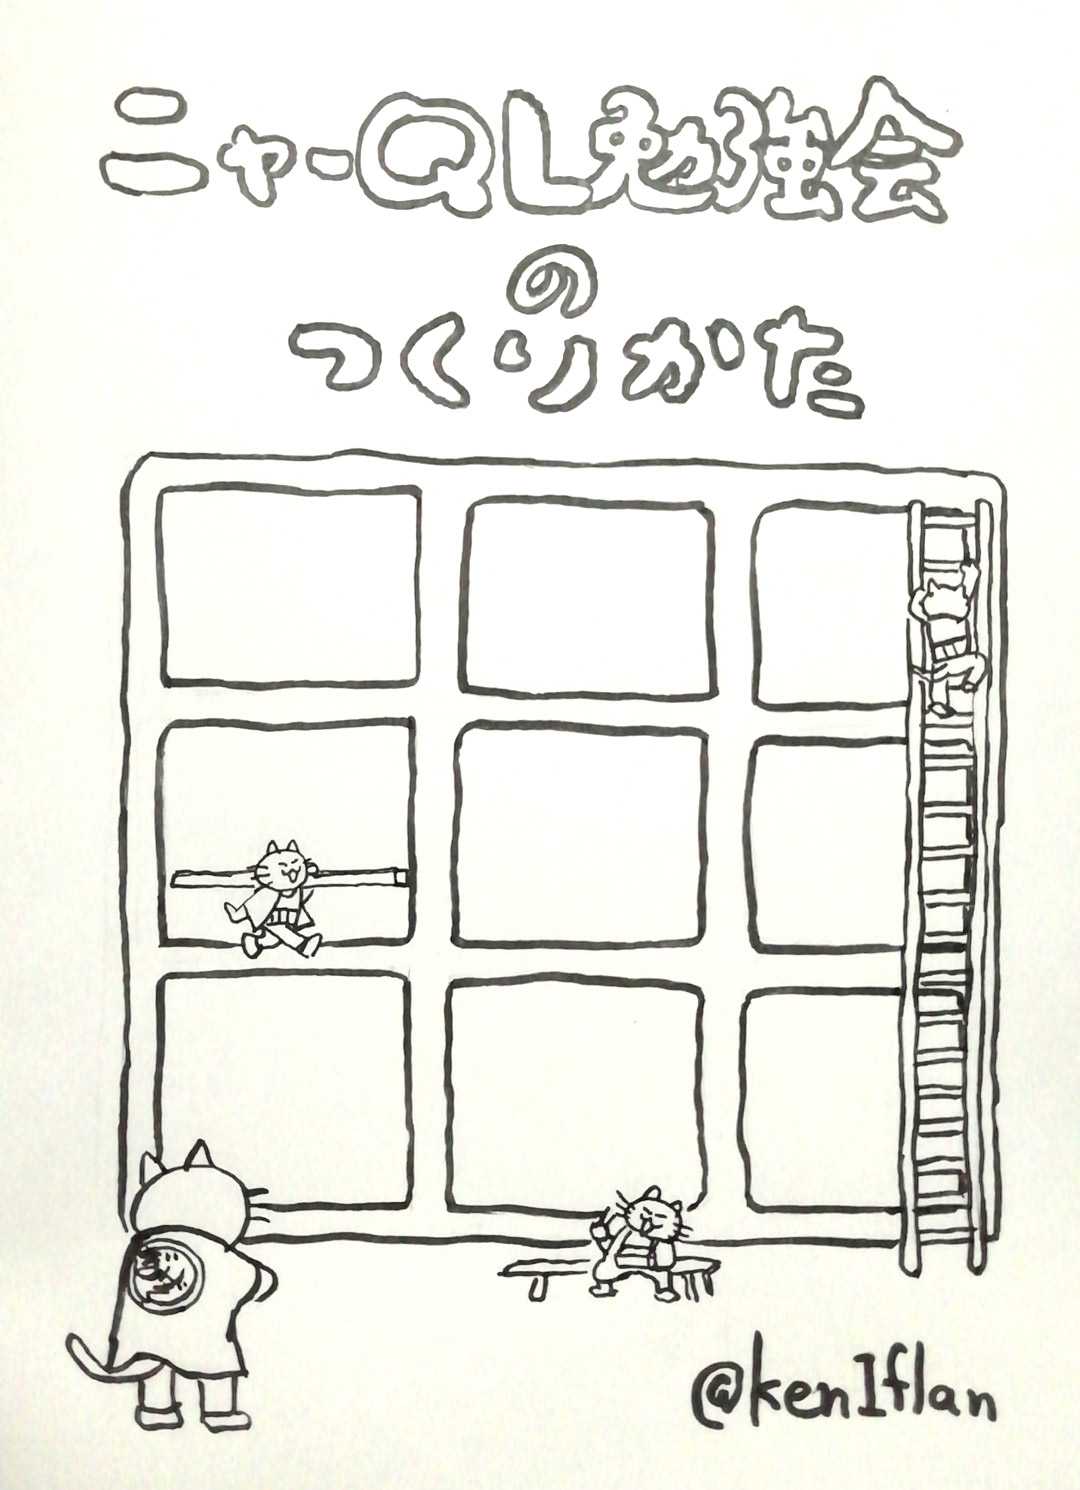 ニャーQL勉強会
の
つくりかた
@ken1flan